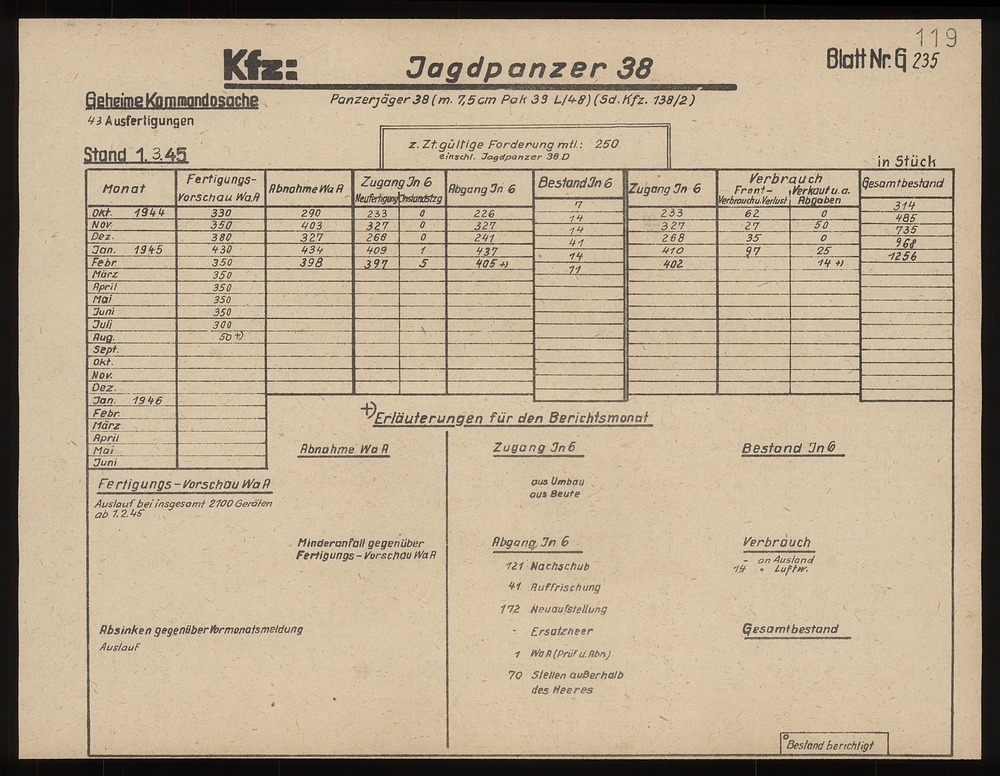 119
Kfz: Jagdpanzer 38 Blatt Nr. G 235
Geheime Kommandosache Panzerjäger 38 (m. 7,5 cm Pak 39 L/48) (Sd. Kfz. 138/2)
43 Ausfertigungen
z. Zt. gültige Forderung mtl.: 250
einschl. Jagdpanzer 38 D
Stand 1.3.45 in Stück
Monat Fertigungs-Vorschau Wa A Abnahme Wa A Zugang Jn 6 Neufertigung Jnstandstzg Abgang Jn 6 Bestand Jn 6 Zugang Jn 6 Verbrauch Front-Verbrauch u. Verlust Verkauf u. a. Abgaben Gesamtbestand
7 314
Okt. 1944 330 290 233 0 226 233 62 0
14 485
Nov 350 403 327 0 327 327 27 50
14 735
Dez. 380 327 268 0 241 268 35 0
41 968
Jan. 1945 430 434 409 1 437 410 97 25
14 1256
Febr. 350 398 397 5 405 +) 402 14 +)
11
März 350
April 350
Mai 350
Juni 350
Juli 300
Aug. 50 +)
Sept.
Okt.
Nov.
Dez.
Jan. 1946
Febr.
März
April
Mai
Juni
+) Erläuterungen für den Berichtsmonat
Abnahme Wa A Zugang Jn 6 Bestand Jn 6
Fertigungs-Vorschau Wa A
aus Umbau
aus Beute
Auslauf bei insgesamt 2100 Geräten
ab 1.2.45
Minderanfall gegenüber
Fertigungs-Vorschau Wa A
Abgang Jn 6
121 Nachschub
41 Auffrischung
172 Neuaufstellung
- Ersatzheer
1 Wa A (Prüf u. Abn.)
70 Stellen außerhalb
des Heeres
Verbrauch
- an Ausland
14 " Luftw.
Absinken gegenüber Vormonatsmeldung
Auslauf
Gesamtbestand
° Bestand berichtigt